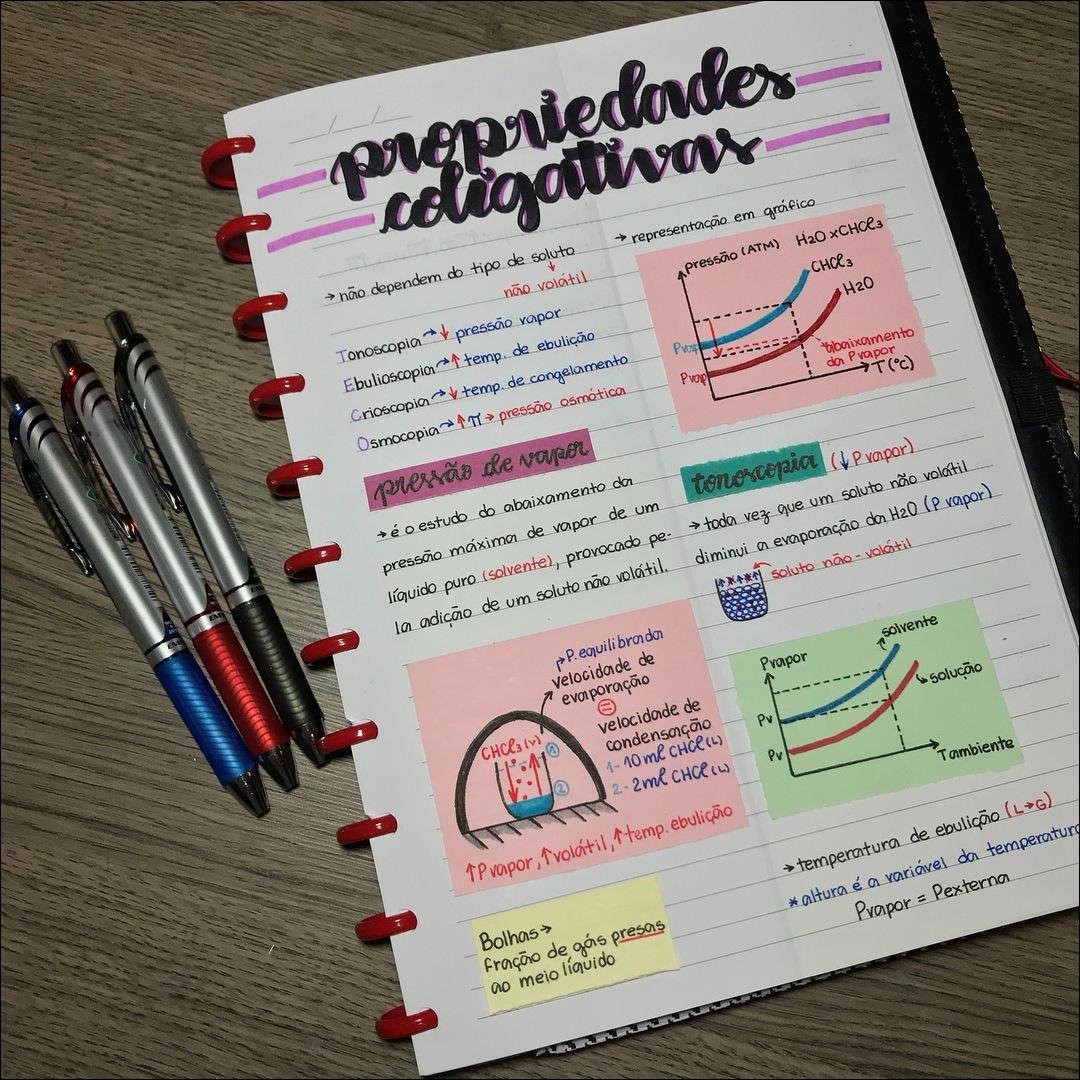 propriedades
coligativas
→ não dependem do tipo de soluto
↓
não volátil
Tonoscopia → ↓ pressão vapor
Ebulioscopia → ↑ temp. de ebulição
Crioscopia → ↓ temp. de congelamento
Osmocopia → ↑ π → pressão osmótica
pressão de vapor
→ é o estudo do abaixamento da
pressão máxima de vapor de um
líquido puro (solvente), provocado pe-
la adição de um soluto não volátil.
P. equilibrada
velocidade de
evaporação
=
velocidade de
condensação
1- 10ml CHCl (L)
2- 2ml CHCl (L)
CHCl3 (v)
1
2
↑ P vapor, ↑ volátil, ↑ temp. ebulição
Bolhas →
fração de gás presas
ao meio líquido
→ representação em gráfico
pressão (ATM) H2O x CHCl3
CHCl3
H2O
Pvap
Pvap
abaixamento
da P vapor
T (°C)
tonoscopia (↓ P vapor)
→ toda vez que um soluto não volátil
diminui a evaporação da H2O (P vapor)
soluto não-volátil
Pvapor
solvente
solução
Pv
Pv
T ambiente
→ temperatura de ebulição (L→G)
* altura é a variável da temperatura
Pvapor = Pexterna